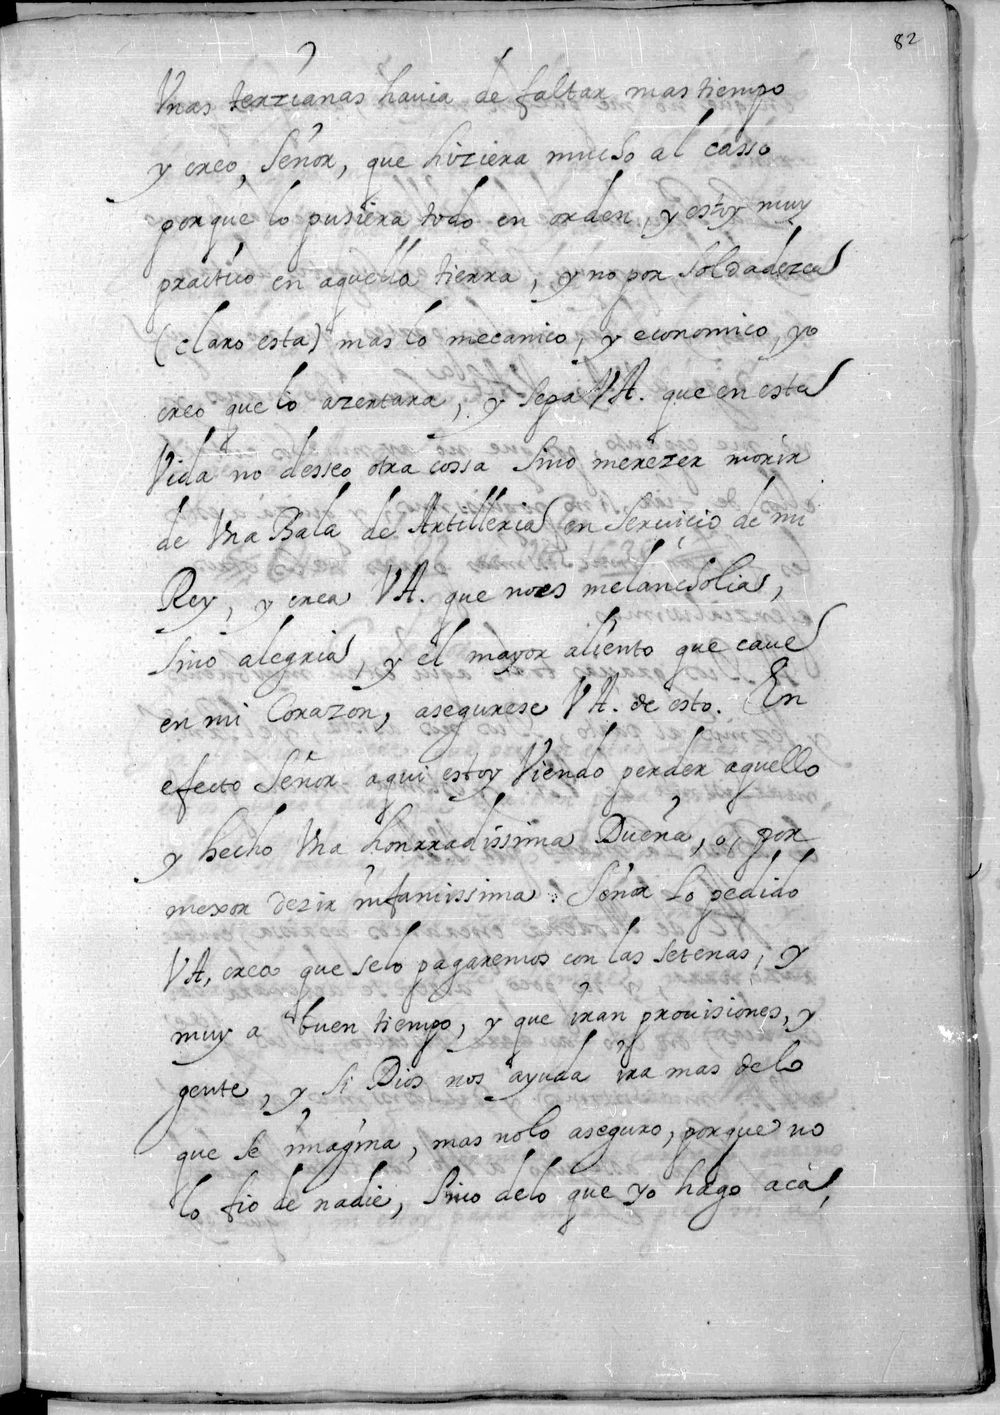 82
Vnas terzianas hauia de faltar mas tiempo
y creo, Señor, que hiziera mucho al casso
porque lo pusiera todo en orden, y estoy muy
practico en aquella tierra, y no por soldadezca
(claro esta) mas lo mecanico, y economico, yo
creo que lo azertara, y sepa VA. que en esta
Vida no desseo otra cossa sino merezer morir
de Vna Bala de Artilleria en seruicio de mi
Rey, y crea VA. que no es melancholia,
sino alegria, y el mayor aliento que caue
en mi Corazon, asegurese VA. de esto. En
efecto Señor aqui estoy Viendo perder aquello
y hecho Vna honrradissima Dueña, o, por
mexor dezir infamissima: Señor Lo pedido
VA, crea que se lo pagaremos con las setenas, y
muy a buen tiempo, y que iran prouisiones, y
gente, y si Dios nos ayuda ira mas de lo
que se imagina, mas no lo aseguro, porque no
lo fio de nadie, sino de lo que yo hago acá,